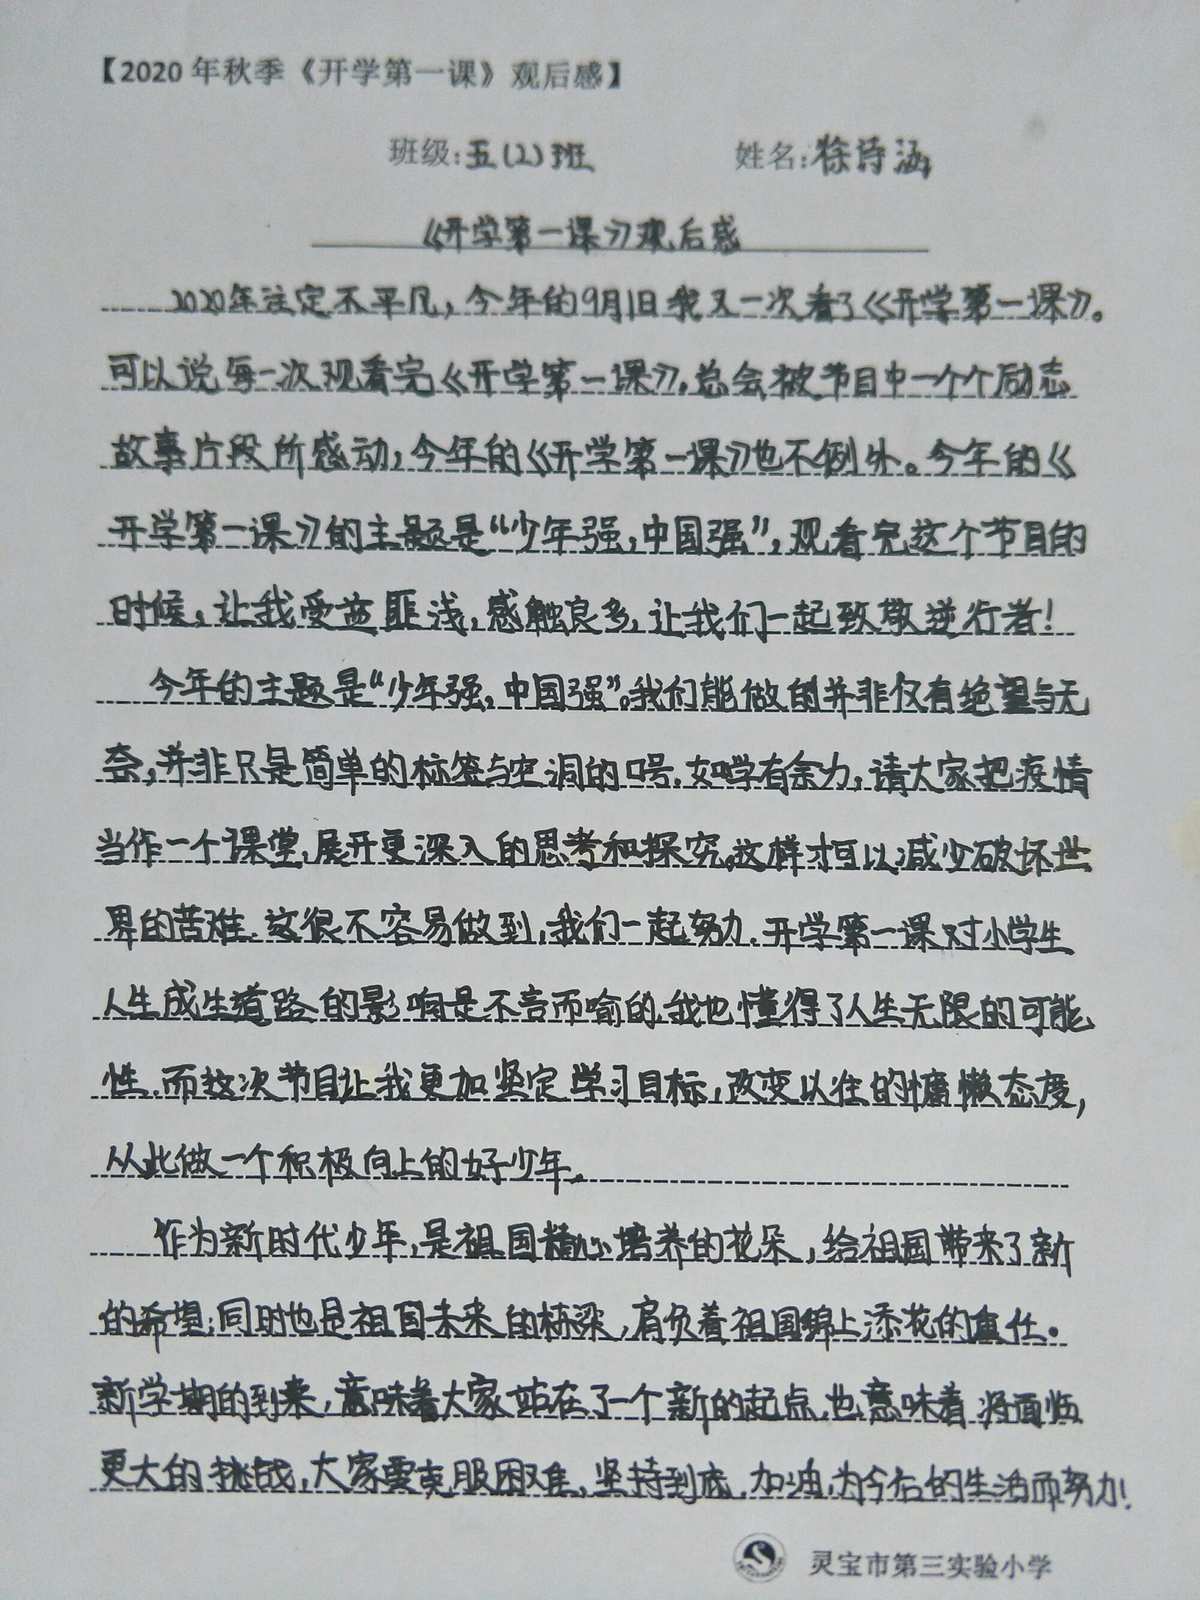 【2020年秋季《开学第一课》观后感】
班级:五(2)班 姓名:徐诗涵
《开学第一课》观后感
2020年注定不平凡,今年的9月1日我又一次看了《开学第一课》。
可以说每一次观看完《开学第一课》,总会被节目中一个个励志
故事片段所感动,今年的《开学第一课》也不例外。今年的《
开学第一课》的主题是“少年强,中国强”,观看完这个节目的
时候,让我受益匪浅,感触良多,让我们一起致敬逆行者!
今年的主题是“少年强,中国强”。我们能做的并非仅有绝望与无
奈,并非只是简单的标签与空洞的口号.如学有余力,请大家把疫情
当作一个课堂,展开更深入的思考和探究,这样才可以减少破坏世
界的苦难.这很不容易做到,我们一起努力.开学第一课对小学生
人生成生道路的影响是不言而喻的.我也懂得了人生无限的可能
性.而这次节目让我更加坚定学习目标,改变以往的慵懒态度,
从此做一个积极向上的好少年。
作为新时代少年,是祖国精心培养的花朵,给祖国带来了新
的希望;同时也是祖国未来的栋梁,肩负着祖国锦上添花的重任。
新学期的到来,意味着大家站在了一个新的起点,也意味着将面临
更大的挑战,大家要克服困难,坚持到底,加油,为今后的生活而努力!
灵宝市第三实验小学